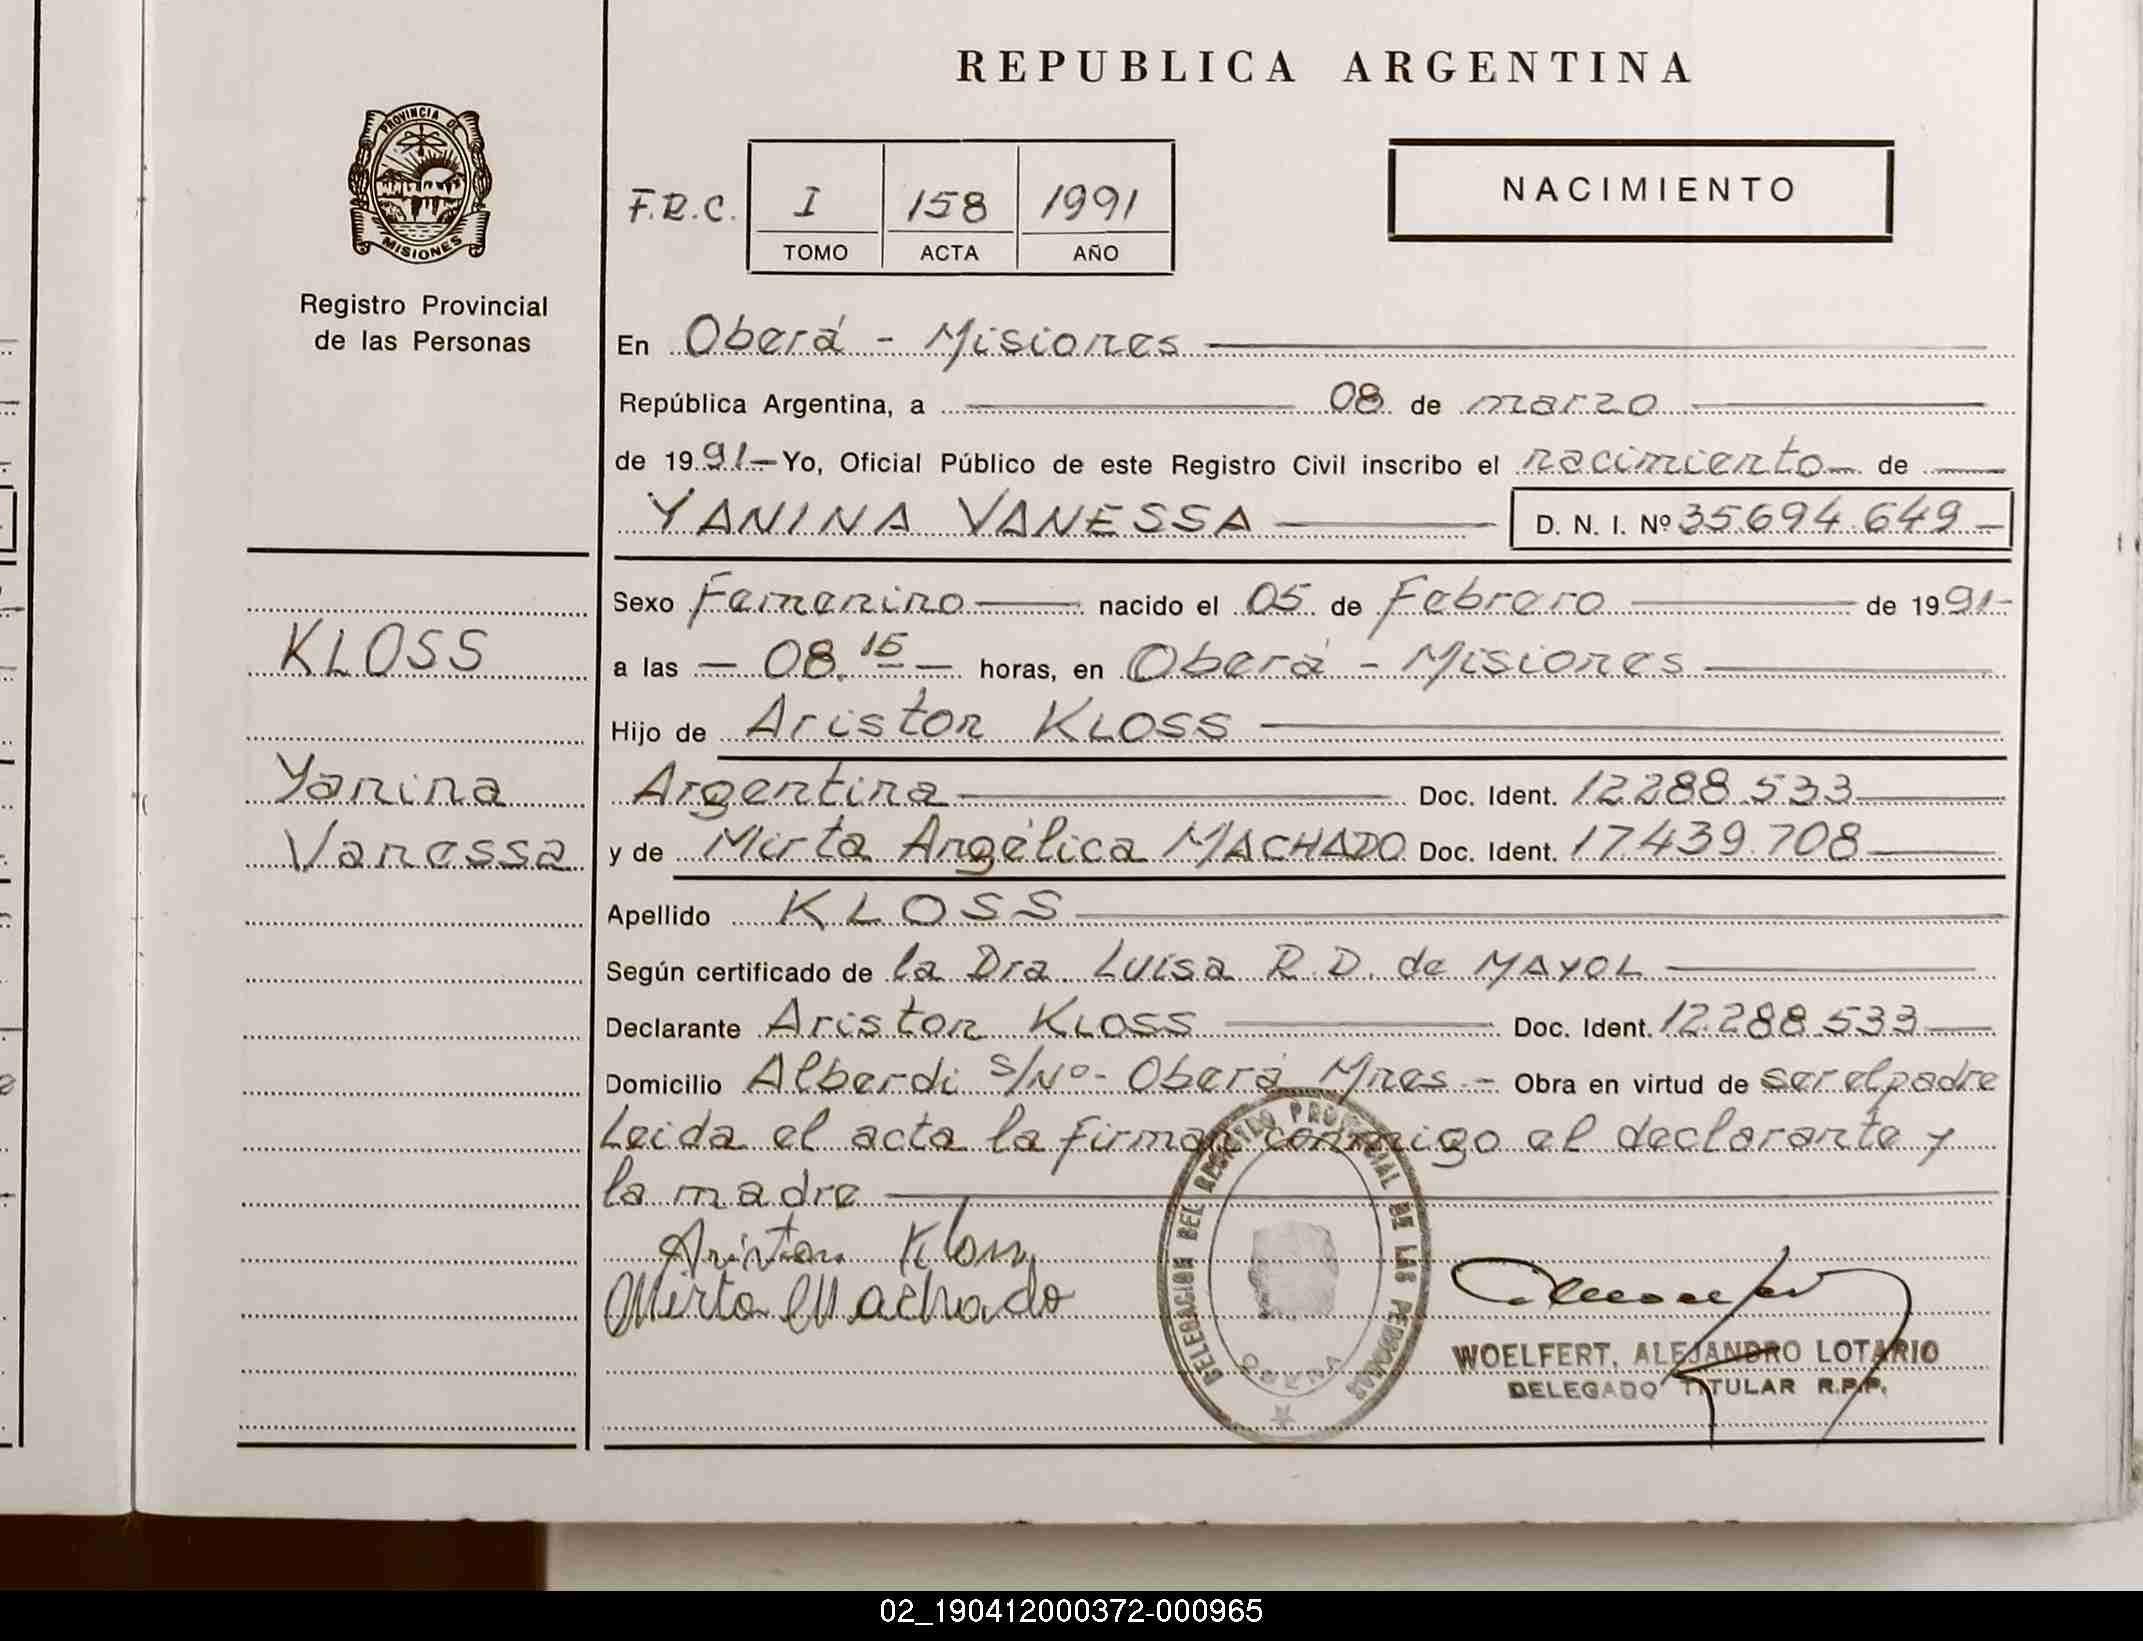 REPUBLICA ARGENTINA
PROVINCIA DE
MISIONES
Registro Provincial
de las Personas
F.R.C. I 158 1991
TOMO ACTA AÑO
NACIMIENTO
En Oberá - Misiones
República Argentina, a 08 de marzo
de 1991- Yo, Oficial Público de este Registro Civil inscribo el nacimiento de
YANINA VANESSA D. N. I. Nº 35.694.649
Sexo Femenino nacido el 05 de Febrero de 1991-
KLOSS
a las 08.15 horas, en Oberá - Misiones
Hijo de Ariston KLOSS
Yanina
Argentina Doc. Ident. 12.288.533
Vanessa
y de Mirta Angélica MACHADO Doc. Ident. 17.439.708
Apellido KLOSS
Según certificado de la Dra. Luisa R. D. de MAYOL
Declarante Ariston KLOSS Doc. Ident. 12.288.533
Domicilio Alberdi S/Nº- Oberá Mnes - Obra en virtud de ser el padre
Leida el acta la firman conmigo el declarante y
la madre
Ariston Kloss
Mirta Machado
DELEGACION DEL REGISTRO PROVINCIAL DE LAS PERSONAS
OBERA
WOELFERT, ALEJANDRO LOTARIO
DELEGADO TITULAR R.P.P.
02_190412000372-000965